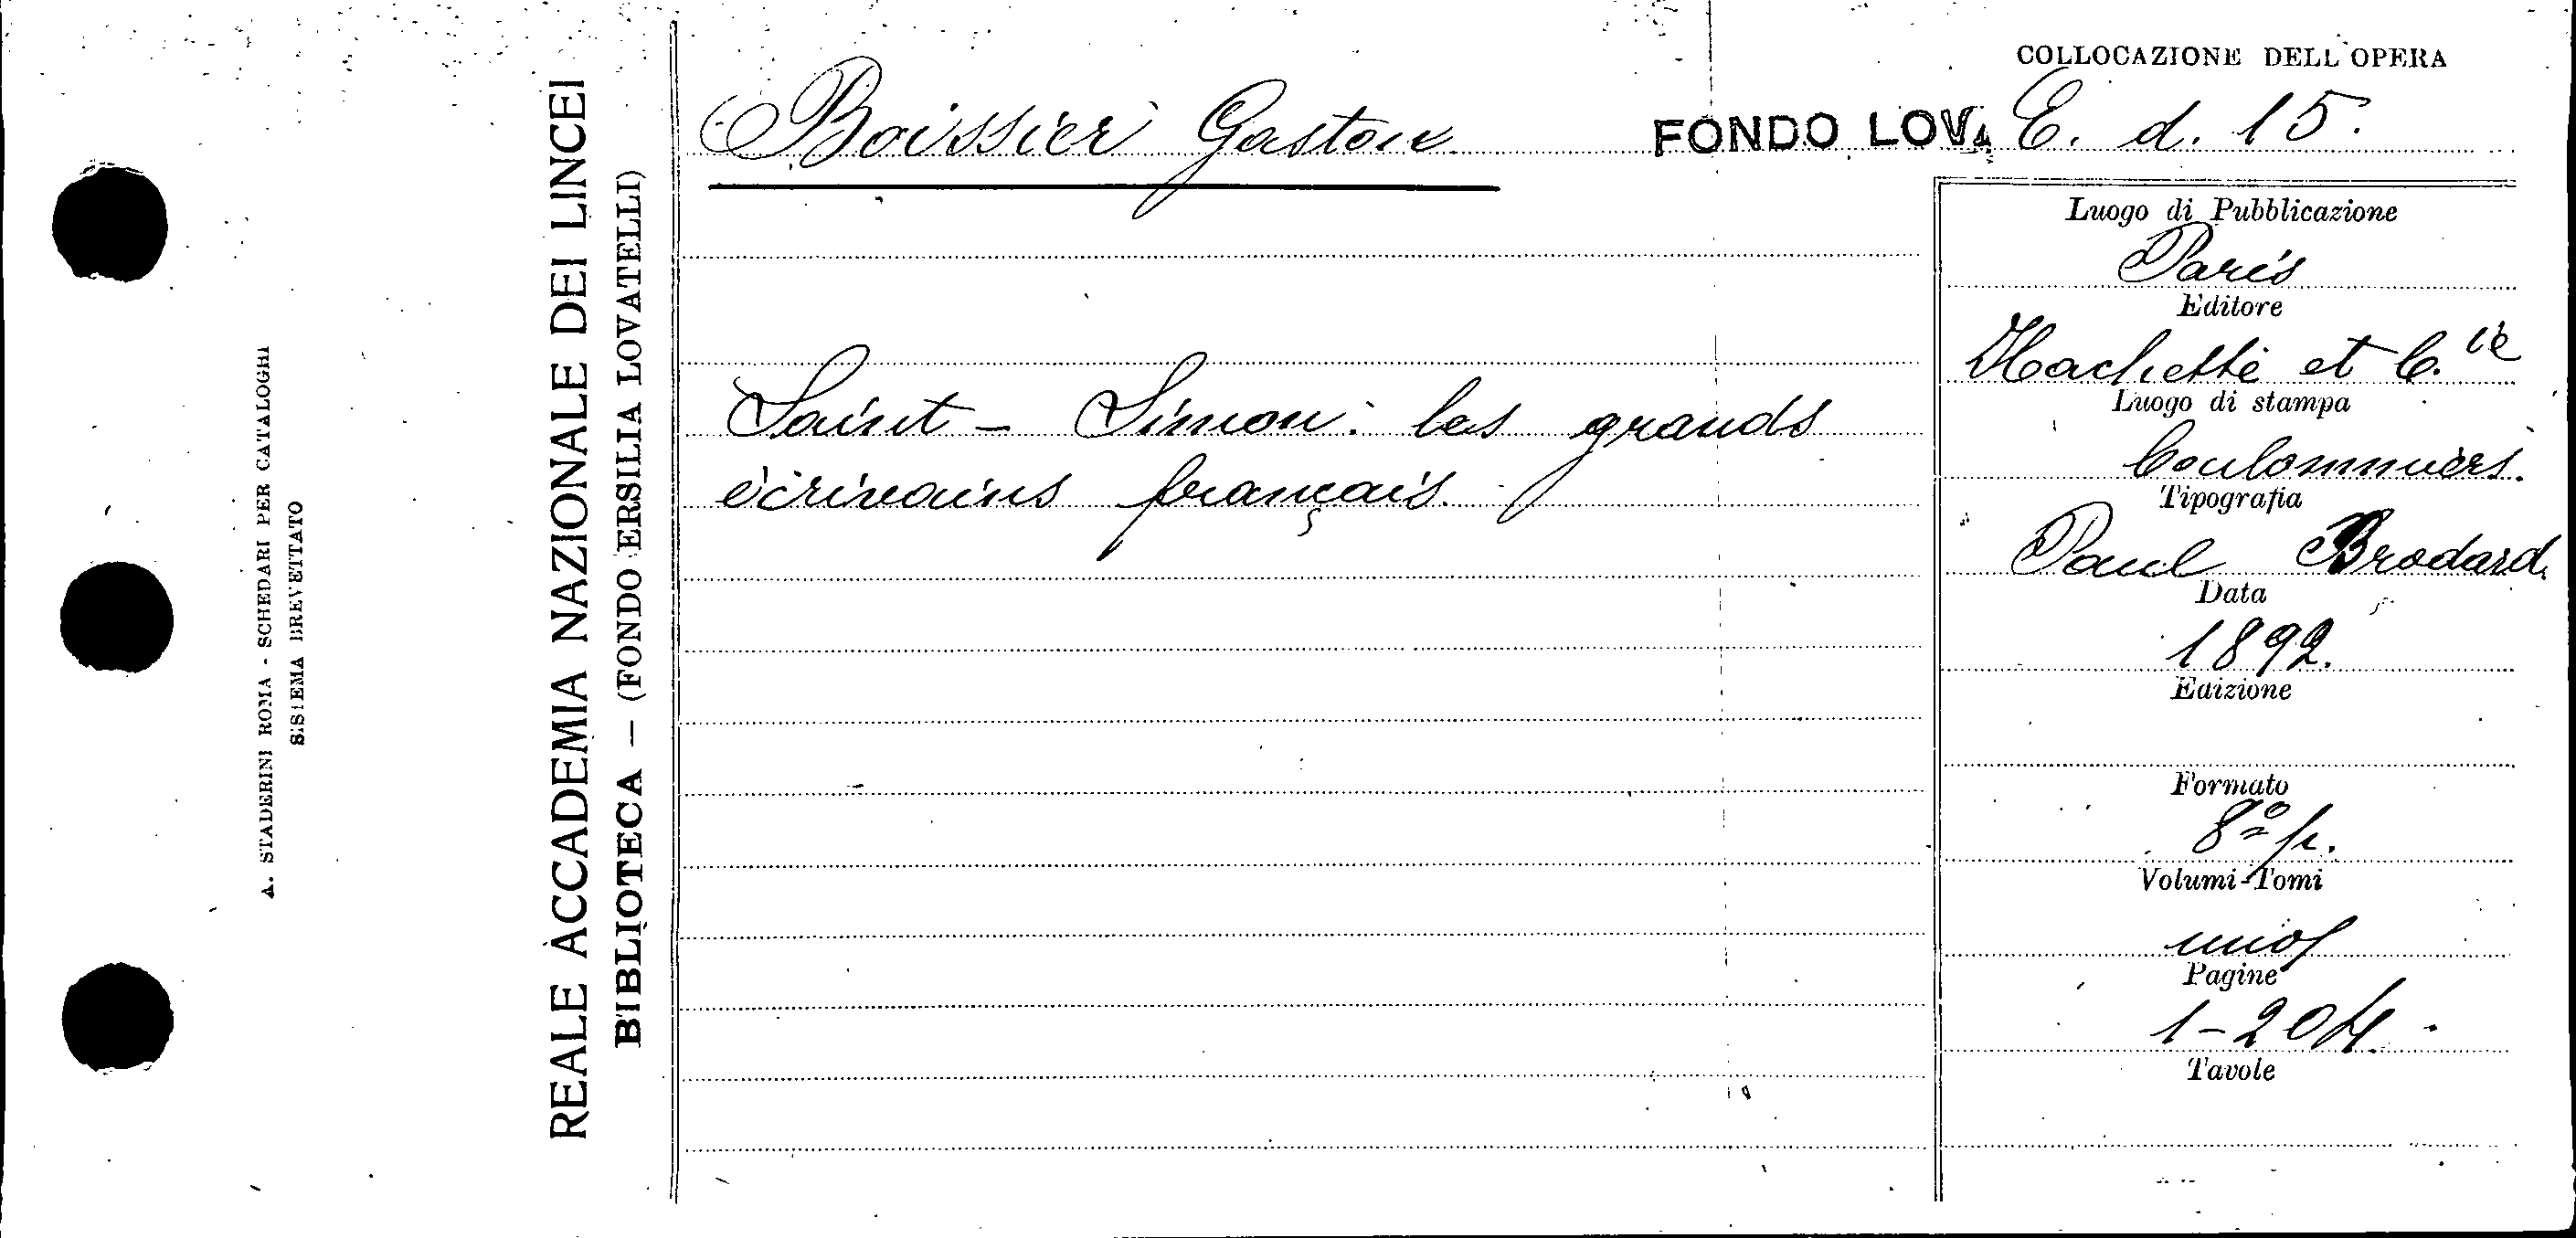 A. STADERINI ROMA - SCHEDARI PER CATALOGHI
SISTEMA BREVETTATO
REALE ACCADEMIA NAZIONALE DEI LINCEI
BIBLIOTECA — (FONDO ERSILIA LOVATELLI)
COLLOCAZIONE DELL'OPERA
Boissier Gaston
FONDO LOV. E. d. 15.
Saint - Simon: les grands
écrivains français.
Luogo di Pubblicazione
Paris
Editore
Hachette et C.ie
Luogo di stampa
Coulommiers.
Tipografia
Paul Brodard.
Data
1892.
Edizione
Formato
8° p.
Volumi-Tomi
uno
Pagine
1-204.
Tavole